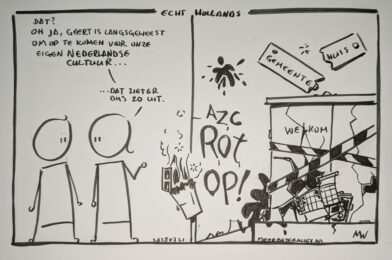 ECHT HOLLANDS
DAT?
OH JA, GEERT IS LANGSGEWEEST
OM OP TE KOMEN VOOR ONZE
EIGEN NEDERLANDSE
CULTUUR...
...DAT ZIET ER
DUS ZO UIT.
GEMEENTE
HUIS
WELKOM
AZC
ROT
OP!
MW